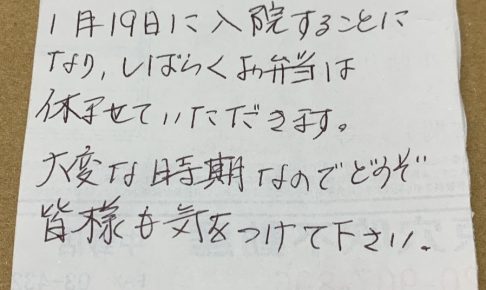 1月19日に入院することに
なり、しばらくお弁当は
休ませていただきます。
大変な時期なのでどうぞ
皆様も気をつけて下さい。